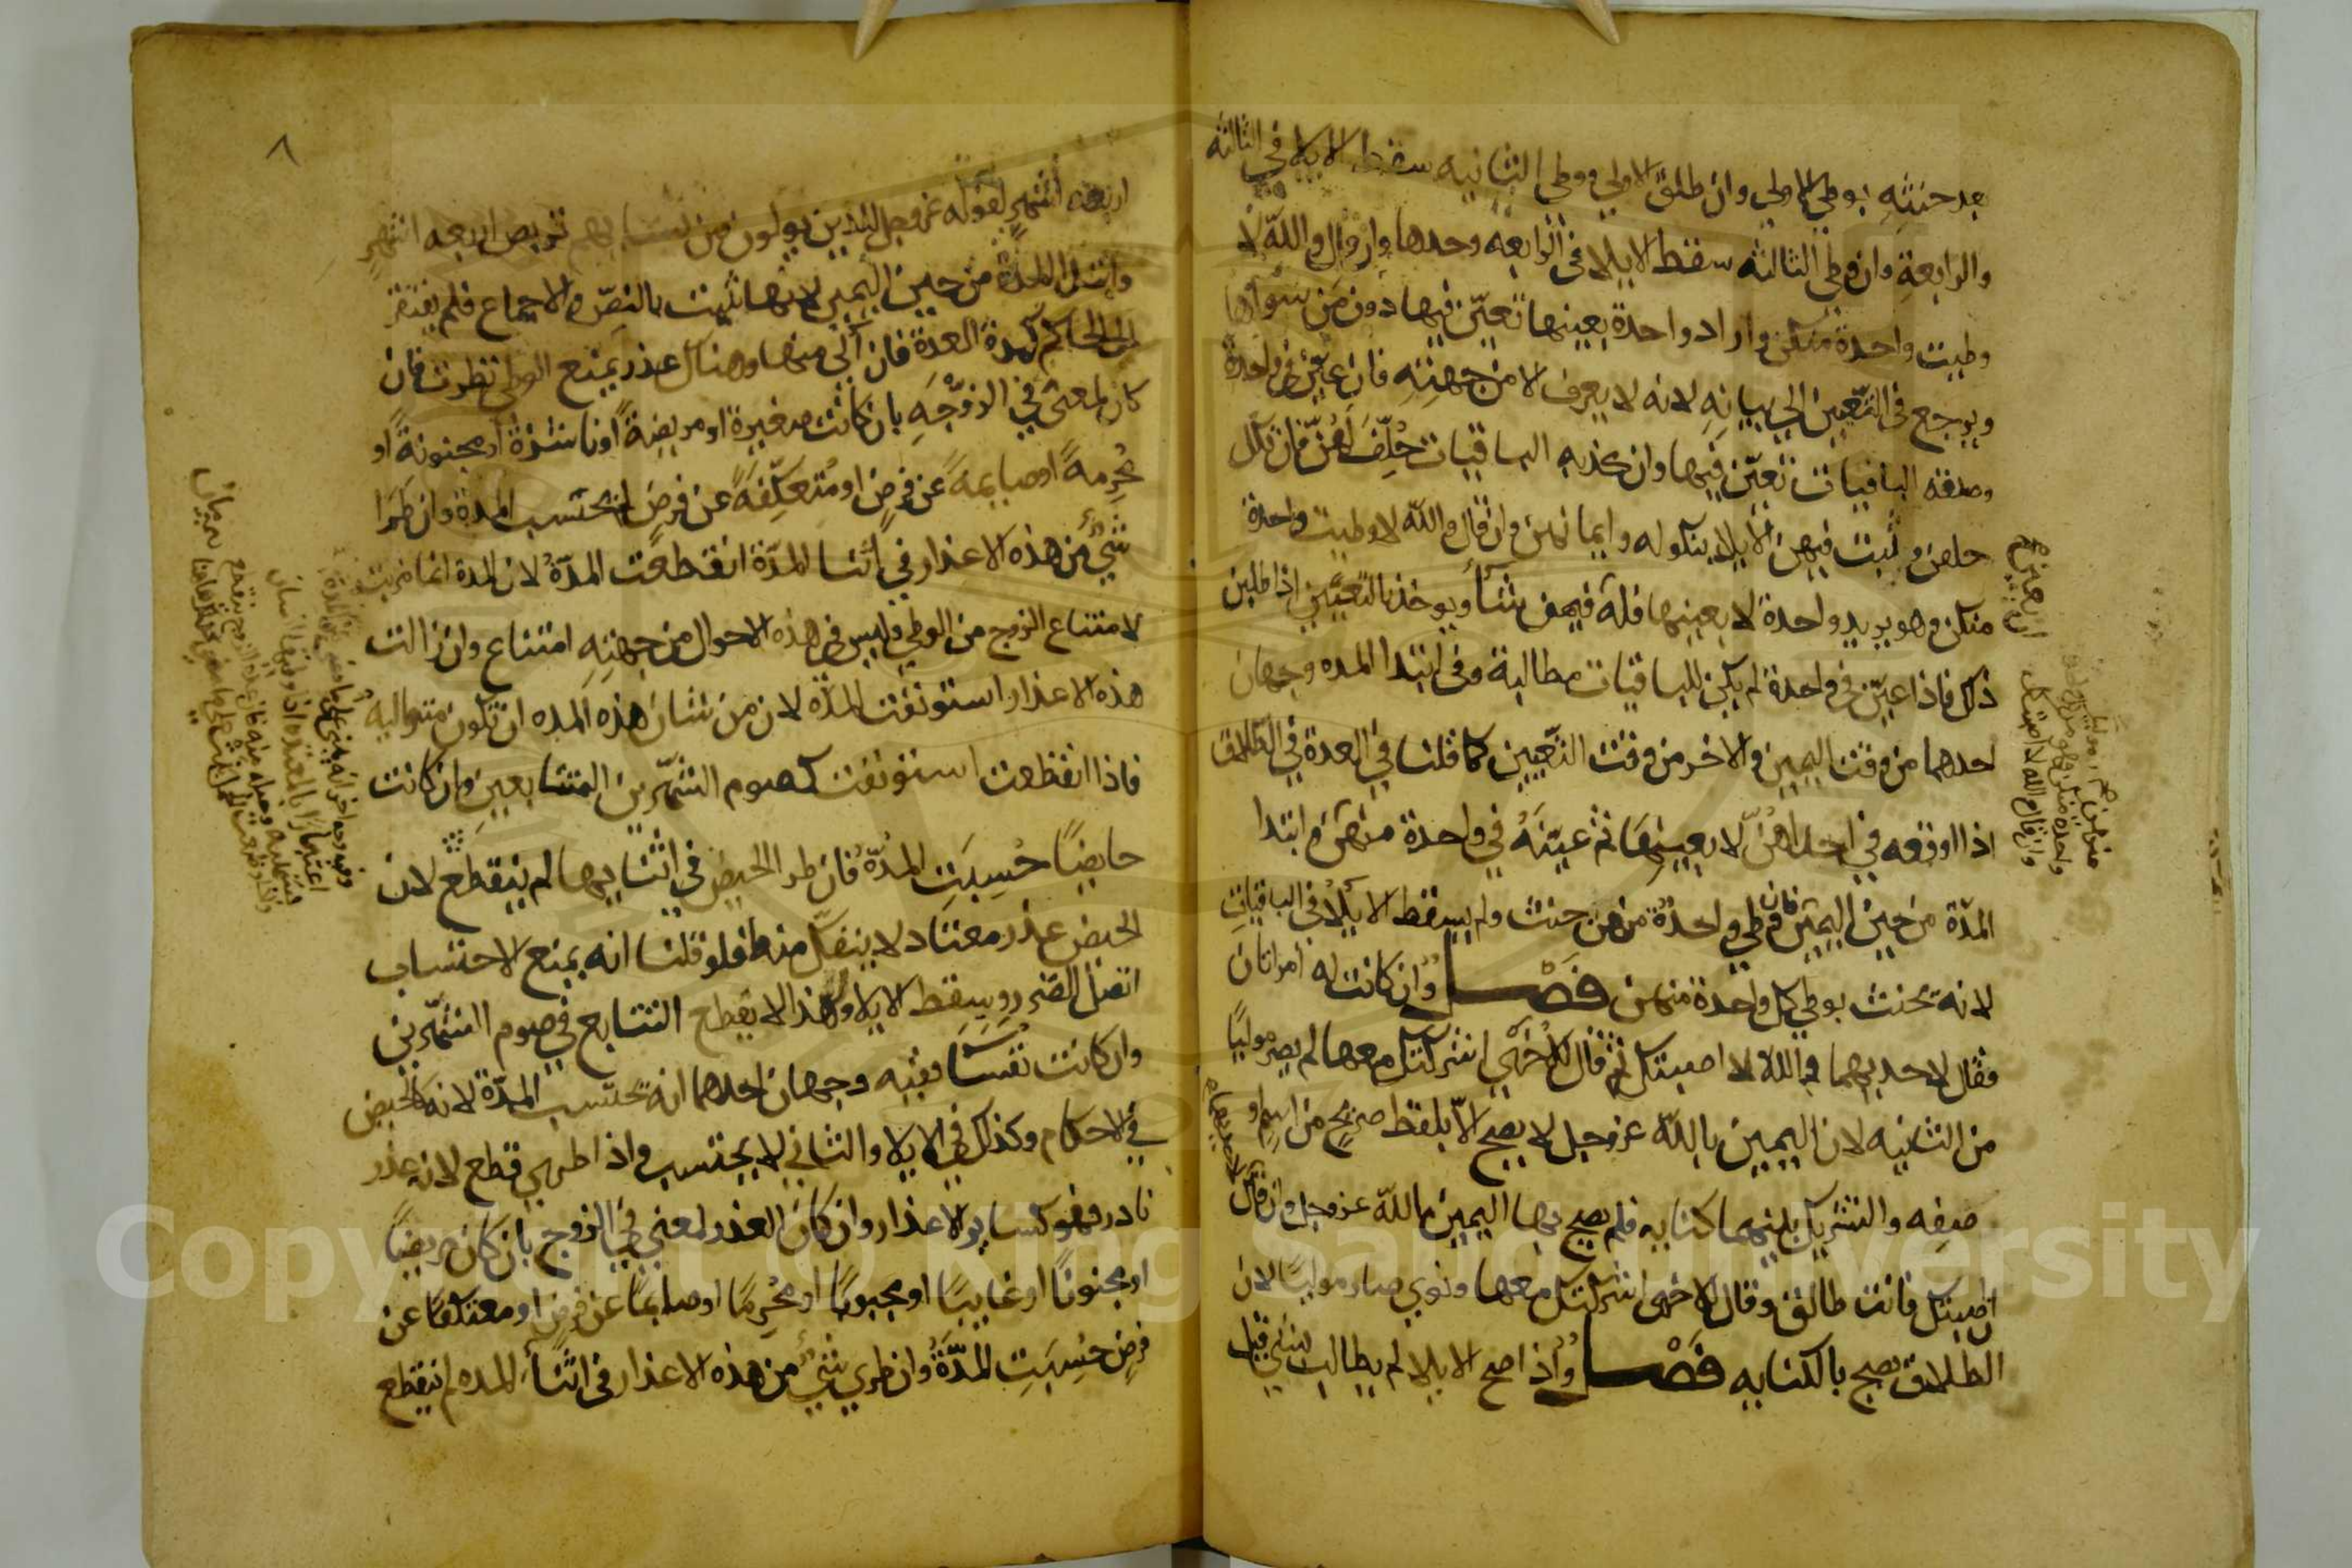 بعد حنثه بوطي الاولى وان طلق الاولى ووطي الثانيه سقط الايلا في الثالثه
والرابعة وان وطي الثالثه سقط الايلا في الرابعه وحدها وان قال والله لا
وطيت واحدة منكن واراد واحدة بعينها تعيّن فيها دون من سواها
ويرجع في التعيين الي بيانه لانه لا يعرف الا من جهته فان عيّن في واحدة
وصدقه الباقيات تعيّن فيها وان كذبه الباقيات حلف لهن فان نكل
حلفن وثبت فيهن الايلا بنكوله وايمانهن وان قال والله لا وطيت واحدة
منكن وهو يريد واحدة لا بعينها فله فيمن شأ ويوخذ بالتعيين اذا طلبن
ذلك فاذا عيّن في واحدة لم يكن للباقيات مطالبة وفي ابتدا المده وجهان
احدهما من وقت اليمين والاخر من وقت التعيين كما قلنا في العدة في الطلاق
اذا اوقعه في احداهن لا بعينها ثم عيّنه في واحدة منهن وابتدا
المدّة من حين اليمين فان وطي واحدة منهن حنث ولم يسقط الايلا في الباقيات
لانه تحنث بوطي كل واحدة منهن فصل وان كانت له امراتان
فقال لاحديهما والله لا اصبتك ثم قال للاخرى اشركتك معها لم يصر موليًا
من الثانيه لان اليمين بالله عز وجل لا يصح الا بلفظ صريح من اسم او
صفه والتشريك بينهما كنايه فلم يصح بها اليمين بالله عز وجل وان قال
ان اصبتك فانت طالق وقال للاخرى اشركتك معها ونوي صار موليًا لان
الطلاق يصح بالكنايه فصل واذا صح الايلا لم يطالب بشي قبل
٨
اربعه اشهر لقوله عز وجل للذين يولون من نسايهم تربص اربعه اشهر
وابتدا المدة من حين اليمين لانها ثبتت بالنص والاجماع فلم يفتقر
الي الحاكم كمدة العدة فان آلى منها وهناك عذر يمنع الوطي نظرت فان
كان لمعنى في الزوجه بان كانت صغيرة او مريضة او ناشزة او مجنونة او
محرمة او صايمة عن فرض او معتكفة عن فرض لم تحتسب المدة وان طرا
شي من هذه الاعذار في اثنا المدّة انقطعت المدّة لان المدة انما ضربت
لامتناع الزوج من الوطي وليس في هذه الاحوال من جهته امتناع وان زالت
هذه الاعذار استونفت المدّة لان من شان هذه المده ان تكون متواليه
فاذا انقطعت استونفت كصوم الشهرين المتتابعين وان كانت
حايضًا حُسِبَتِ المدّة فان طرا الحيض في اثنايها لم ينقطع لان
الحيض عذر معتاد لا ينفك منه فلو قلنا انه يمنع الاحتساب
اتصل الضرر وسقط الايلا ولهذا لا يقطع التتابع في صوم الشهرين
وان كانت نفسا ففيه وجهان احدهما انه تحتسب المدّة لانه كالحيض
في الاحكام وكذلك في الايلا والثاني لا يحتسب واذا طري قطع لانه عذر
نادر فهو كساير الاعذار وان كان العذر لمعني في الزوج بان كان مريضًا
او مجنونًا او غايبًا او مجبوبًا او محرمًا او صايمًا عن فرض او معتكفًا عن
فرض حُسِبَتِ المدّة وان طري شي من هذه الاعذار في اثنأ المده لم تنقطع
Copyright © King Saud University